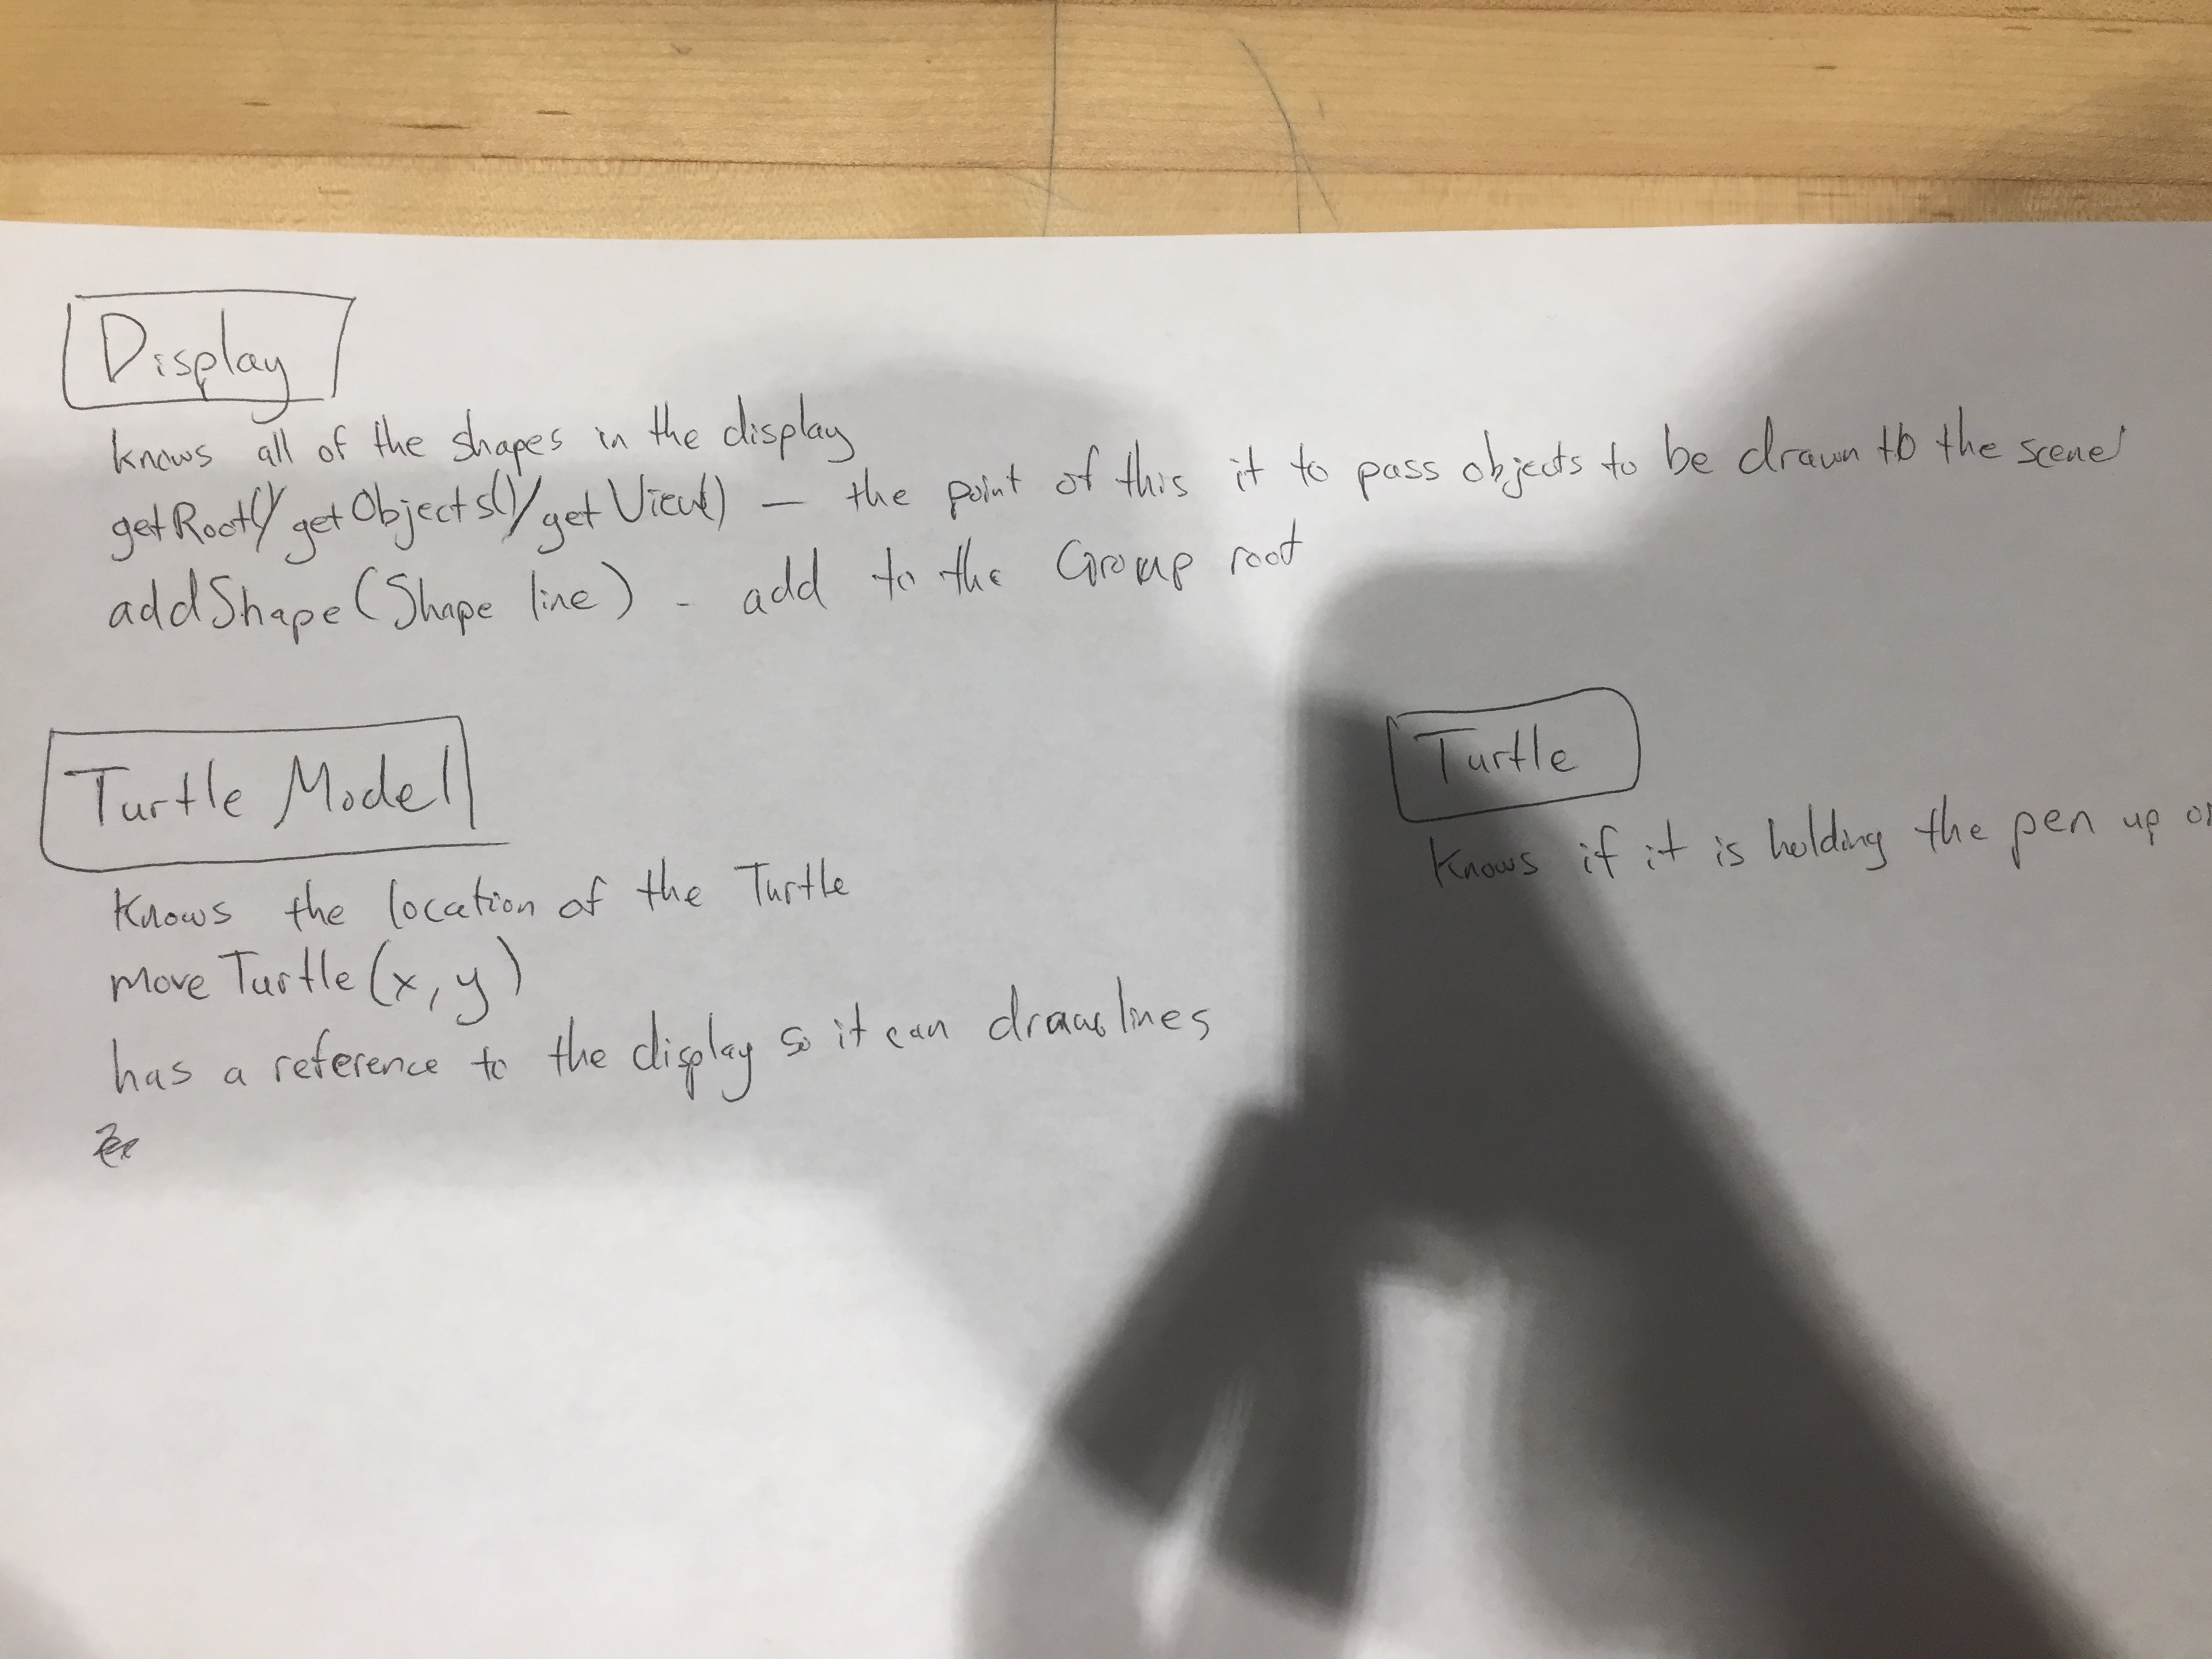 Display
knows all of the shapes in the display
getRoot()/getObjects()/getView() — the point of this it to pass objects to be drawn to the scene
addShape(Shape line) - add to the Group root
Turtle Model
Knows the location of the Turtle
move Turtle(x, y)
has a reference to the display so it can draw lines
Turtle
Knows if it is holding the pen up or